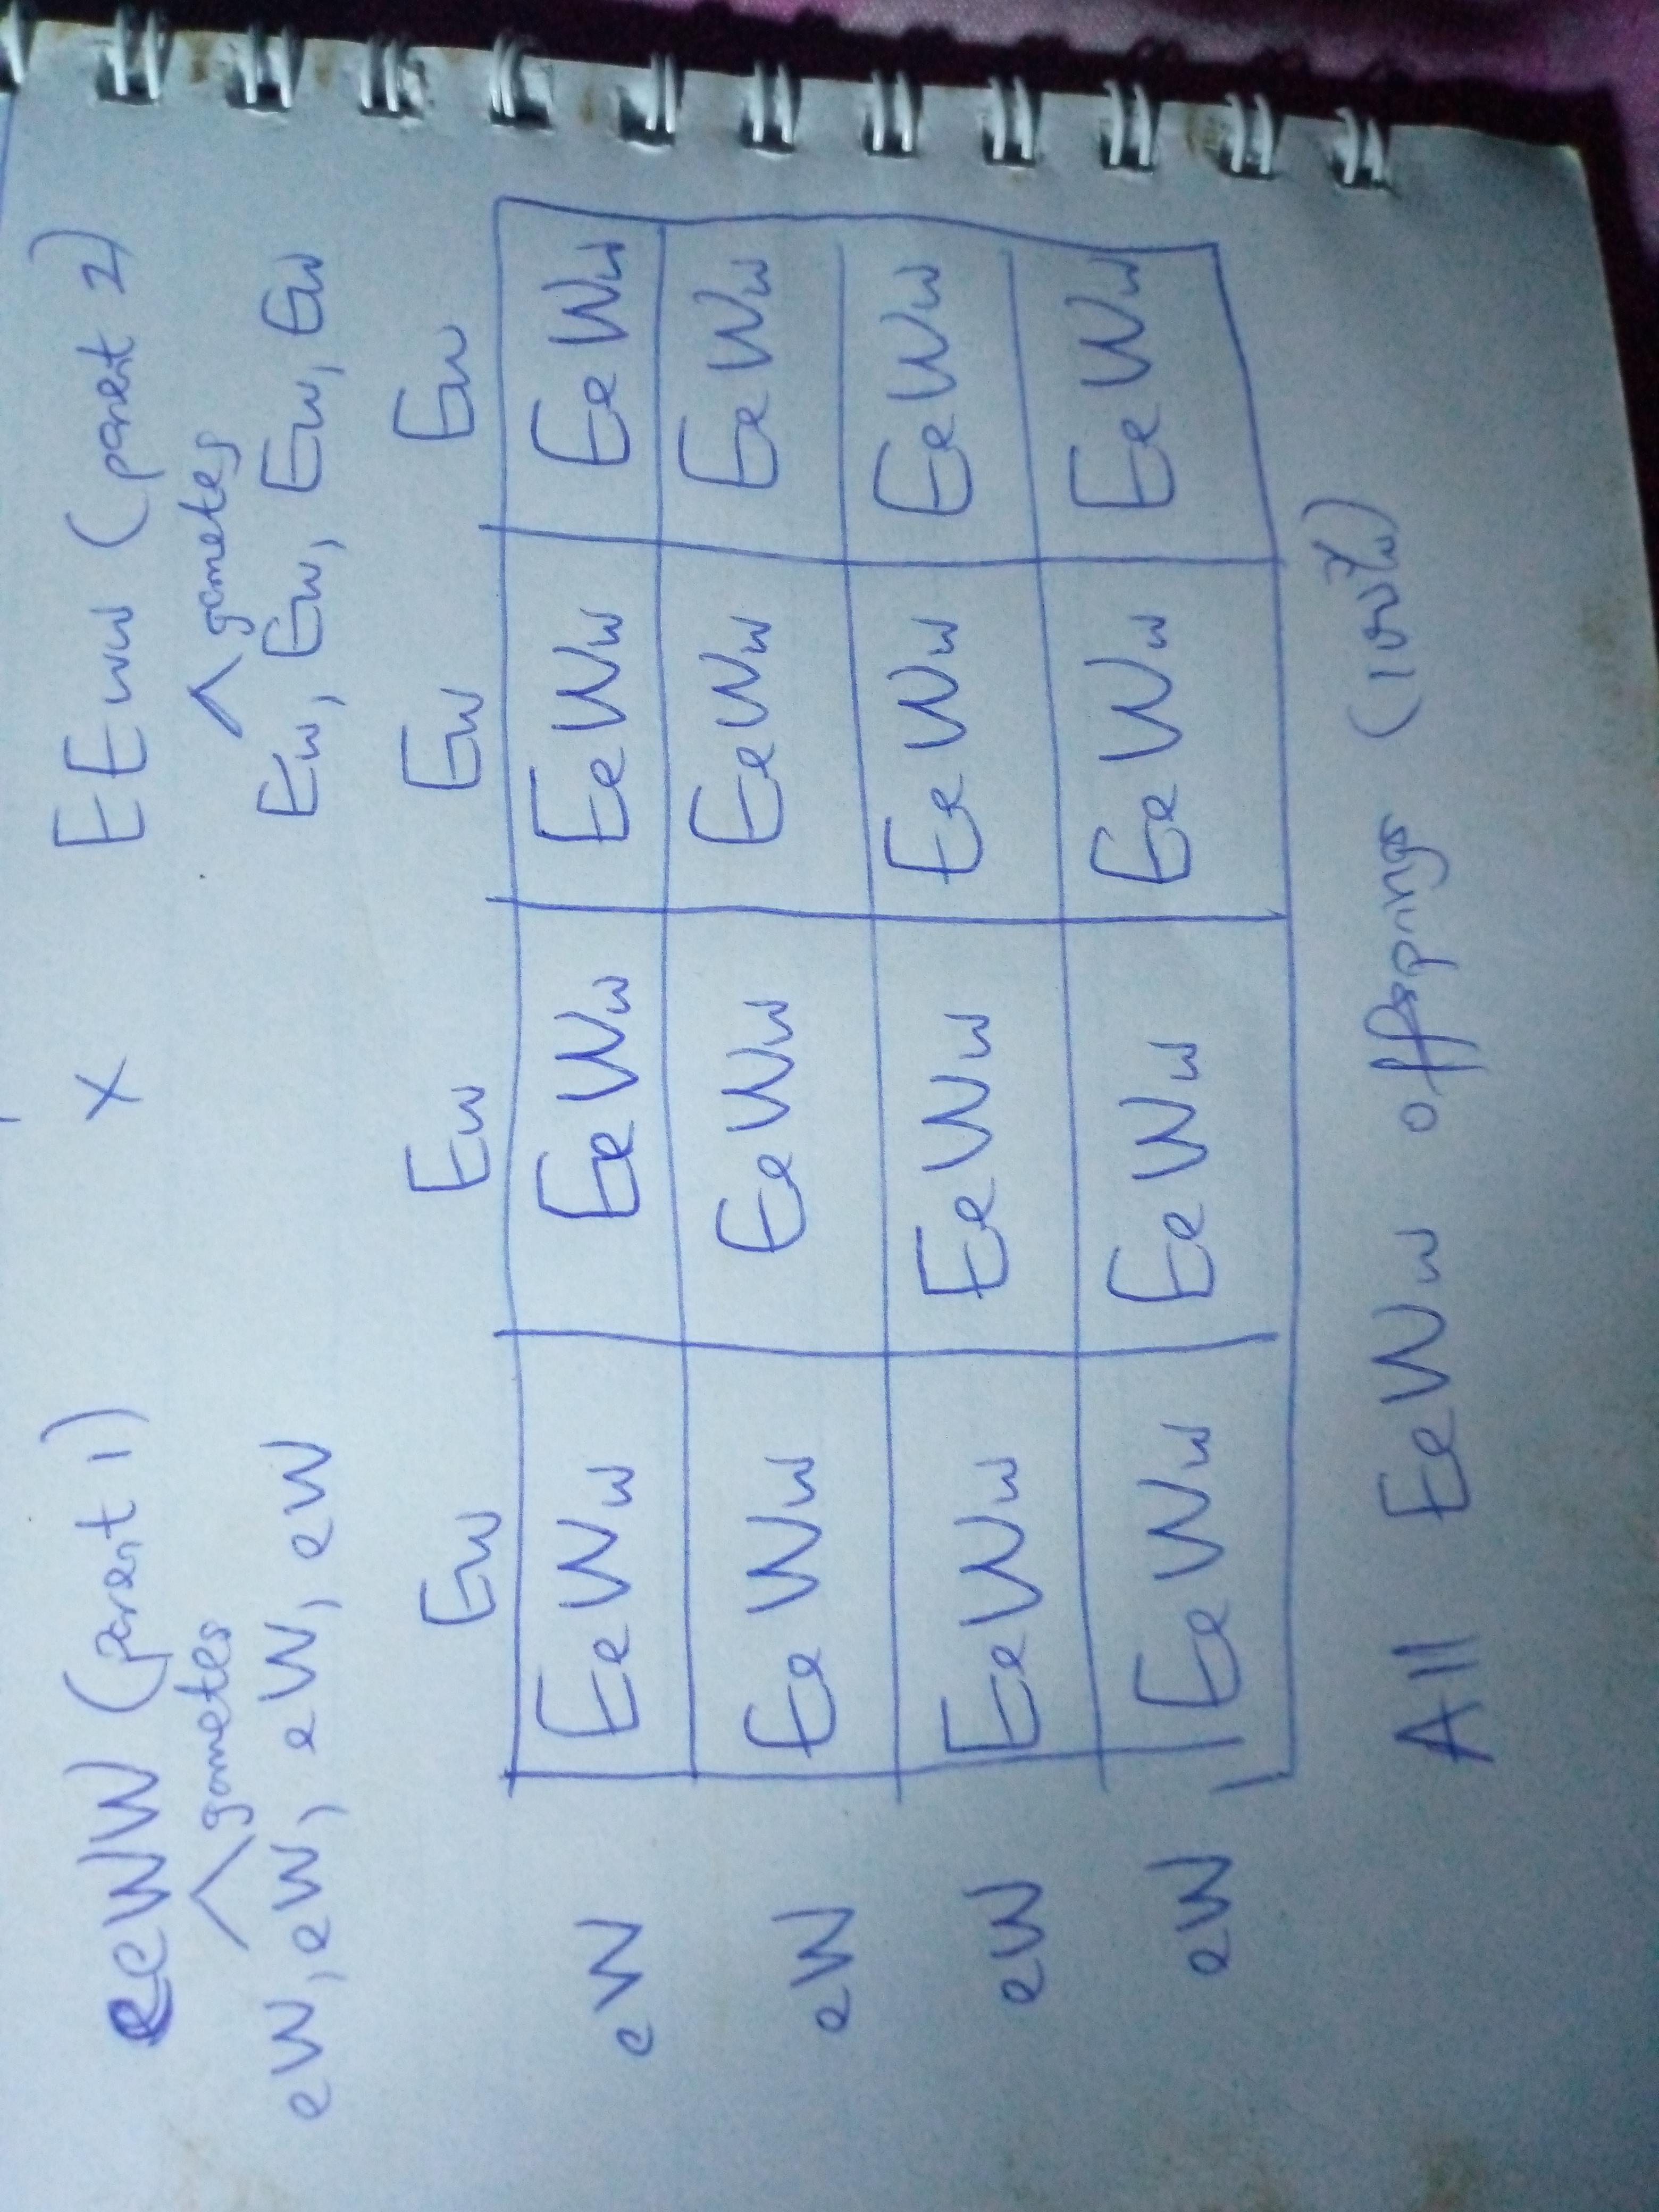 eeWW (parent 1) x EEww (parent 2)
gametes gametes
eW, eW, eW, eW Ew, Ew, Ew, Ew
Ew Ew Ew Ew
eW EeWw EeWw EeWw EeWw
eW EeWw EeWw EeWw EeWw
eW EeWw EeWw EeWw EeWw
eW EeWw EeWw EeWw EeWw
All EeWw offsprings (100%)